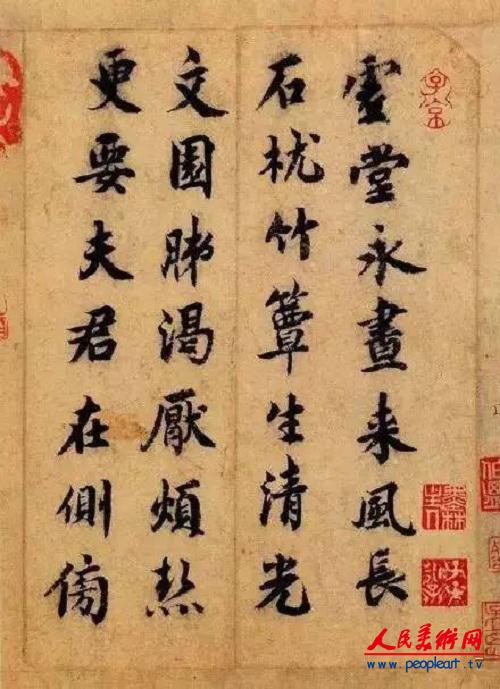 虛堂永晝来風長
石枕竹簟生清光
文園肺渴厭煩熱
更要夫君在側傍
人民美术网
www.peopleart.tv